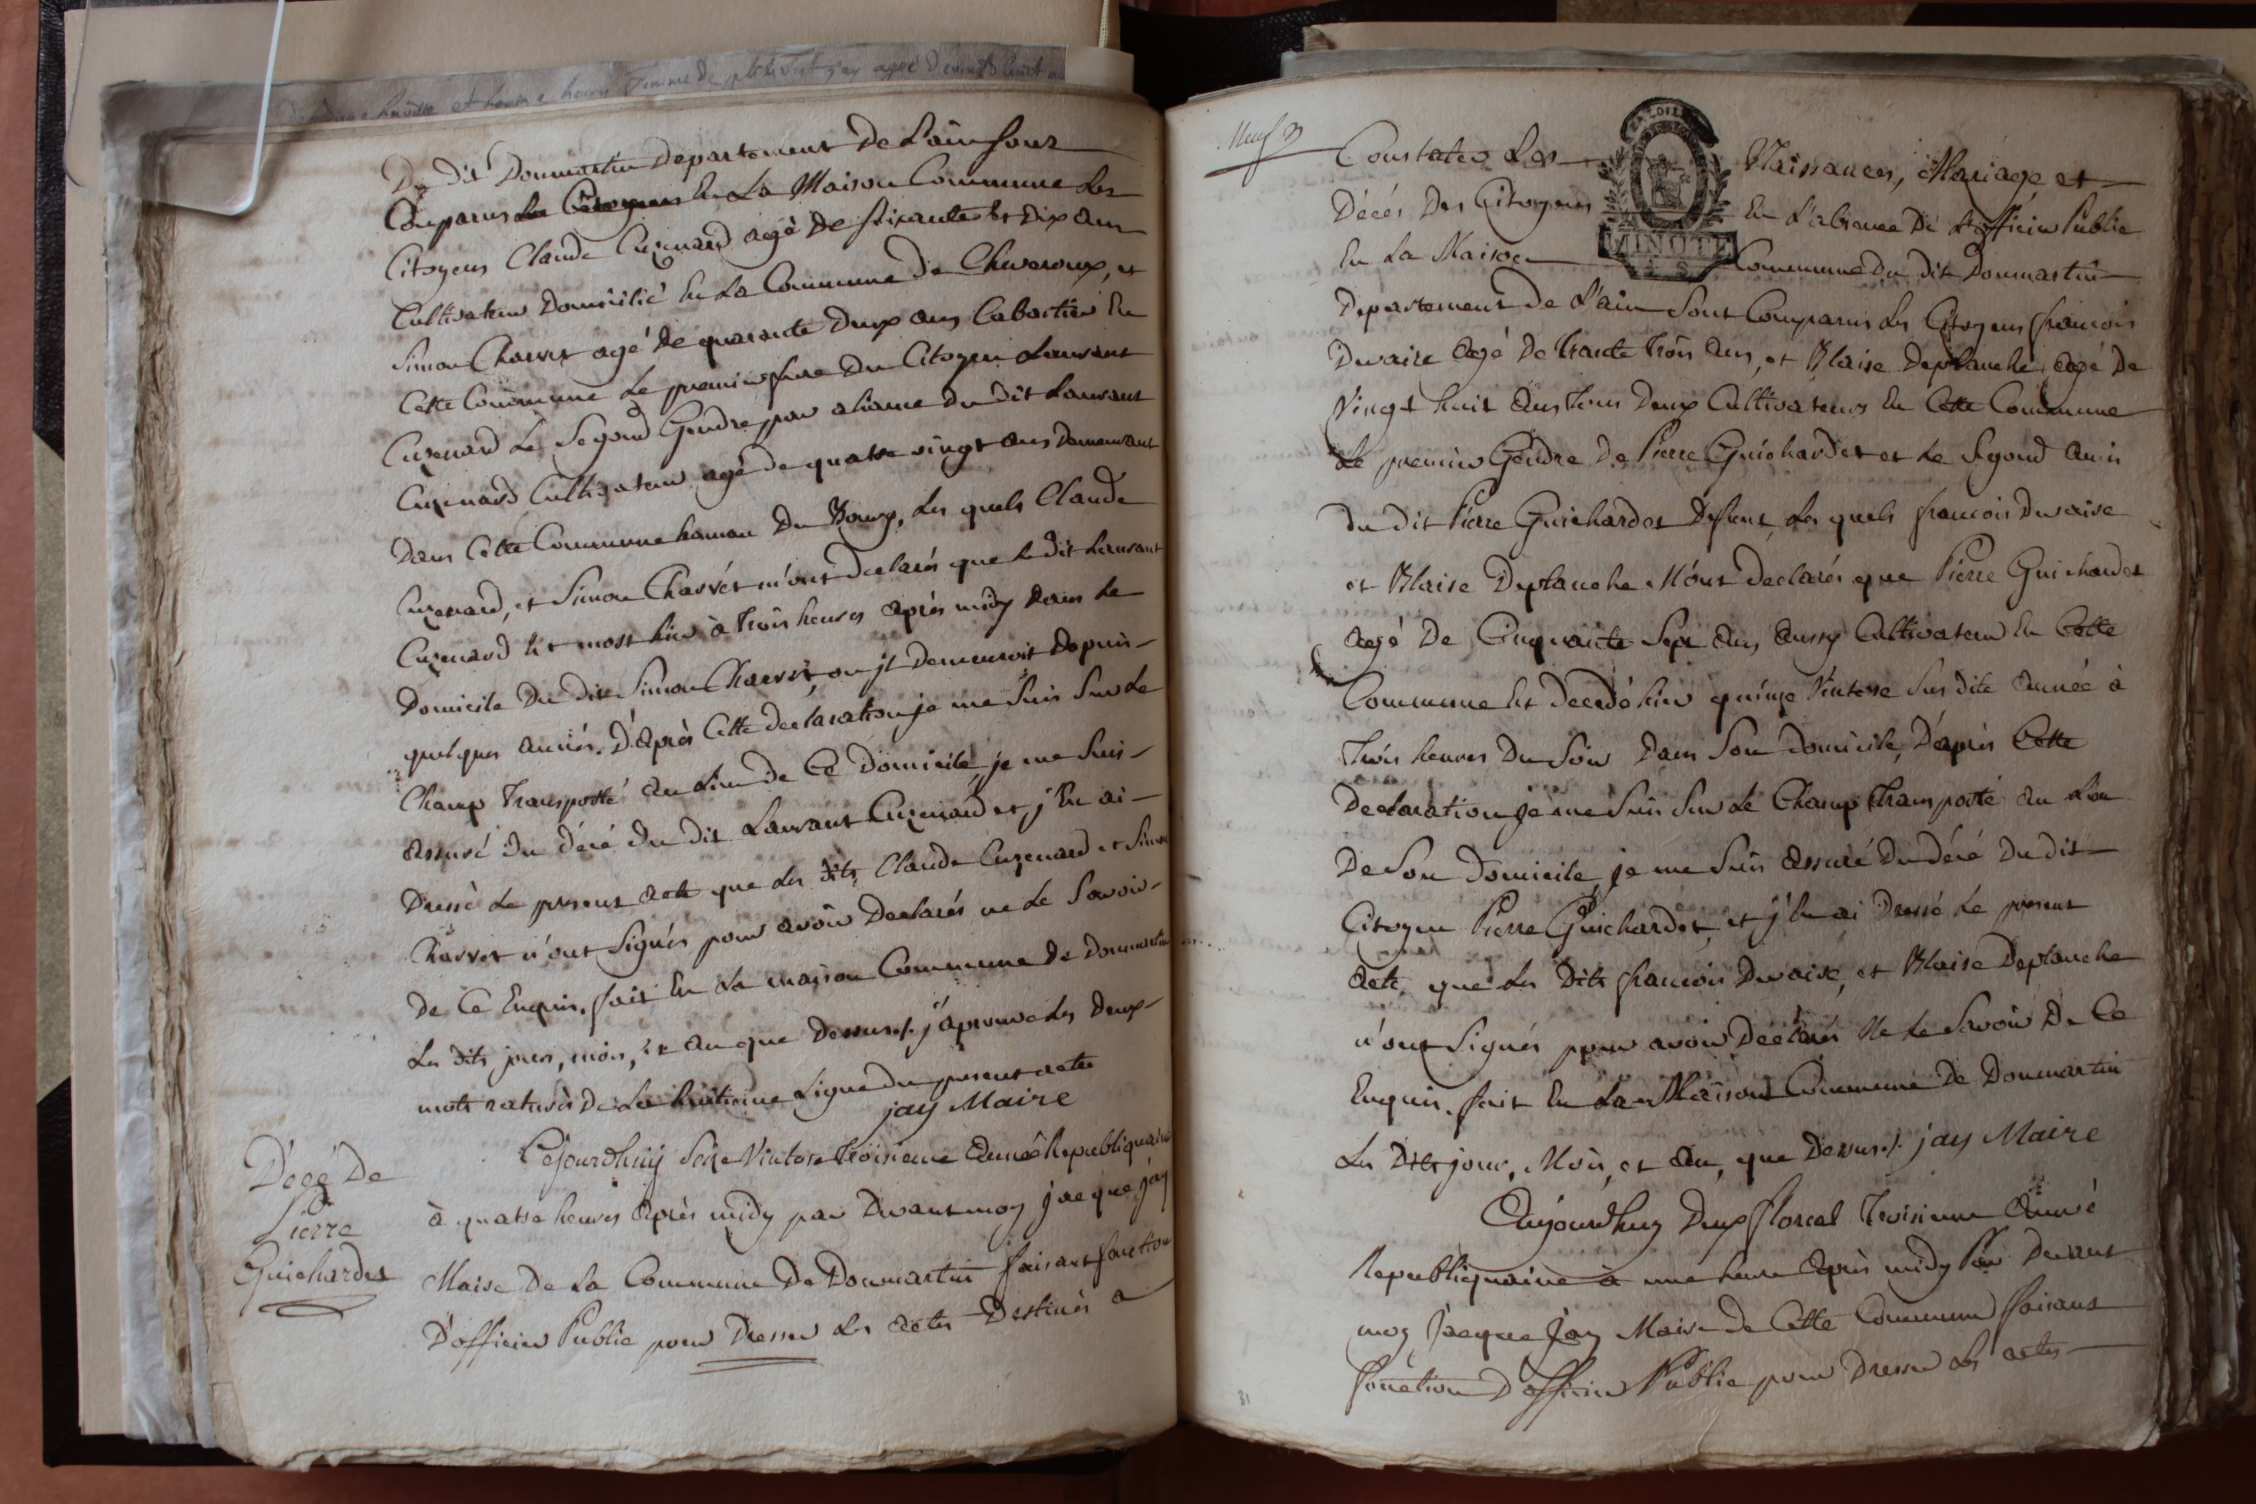 Du dit Dommartin Departement De L'ain sont
Comparus Les Citoyens En La Maison Commune Les
Citoyens Claude Cuzenard agé de soixante et dix ans
Cultivateur Domicilié En La Commune de Chevroux, et
Simon Charvet agé de quarante deux ans Cabartier En
Cette Commune Le premier frere Du Citoyen Laurant
Cuzenard Le Segond Gendre par aliance du dit Laurant
Cuzenard Cultivateur agé de quatre vingt ans demeurant
Dans Cette Commune hameau Du Bourg, Les quels Claude
Cuzenard, et Simon Charvet m'ont declarés que le dit Laurant
Cuzenard Et mort hier à Trois heures après midy dans Le
Domicile Du dit Simon Charvet, ou jl Demeuroit Depuis
quelques années. D'après Cette declaration je me suis sur Le
Champ Transporté au Lieu de Ce Domicile, je me suis
assuré du décé du dit Laurant Cuzenard et j'En ai
Dressé Le present acte que Les dits Claude Cuzenard et Simon
Charvet n'ont Signés pour avoir Declarés ne Le Savoir
De Ce Enquis. fait En La maison Commune de Dommartin
Les dits jours, mois, et an que Dessus./. j'aprouve Les deux
mots raturés De La huitieme Ligne du present acte
jay Maire
Décé De
Pierre
Guichardet
Cejourdhuij Seize Vintose Troisieme année Republiquaine
à quatre heures après midy par Devant moy jacque jay
Maire De La Commune De Dommartin faisant fonction
D'officier Public pour Dresser Les actes Destinés a
Neuf
Constater Les Naissances, Mariage et
Décés Des Citoyens En L'absence De L'officier Public
En La Maison Commune du dit Dommartin
MINUTE
Departement De L'ain Sont Comparus Les Citoyens françois
Duvaire agé De trante trois ans, et Blaise Deplanche agé De
Vingt huit ans Tous Deux Cultivateurs En Cette Commune
Le premier Gendre De Pierre Guichardet et Le Segond ami
du dit Pierre Guichardet Defunt, Les quels françois Duvaire
et Blaise Deplanche M'ont declarés que Pierre Guichardet
agé De Cinquante Sept ans aussy Cultivateur En Cette
Commune Et decedé hier quinze Vintose Sus dite année à
Trois heures Du Soir Dans Son domicile, D'après Cette
Declaration je me Suis Sur Le Champ Transporté au Lieu
De Son Domicile, je me Suis assuré Du décé Du dit
Citoyen Pierre Guichardet, et j'En ai Dressé Le present
acte, que Les Dits francois Duvaire, et Blaise Deplanche
n'ont Signés pour avoir Declarés Ne Le Savoir De Ce
Enquis. fait En La Maison Commune De Dommartin
Les Dits jour, Mois, et an, que Dessus./. jay Maire
Aujourdhuy Deux floreal Troisieme année
Republiquaine à une heure après midy Par Devant
moy Jacque Jay Maire de Cette Commune faisant
fonction D'officier Public pour Dresser Les actes